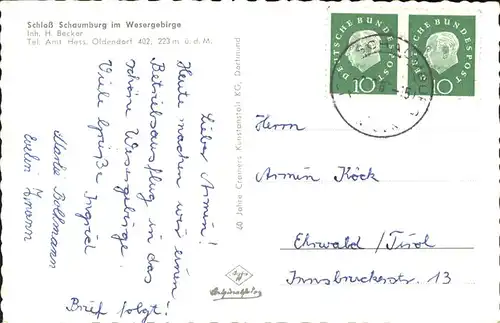 Schloß Schaumburg im Wesergebirge
Inh. H. Becker
Tel. Amt Hess. Oldendorf 402, 223 m ü. d. M.
Lieber Armin!
Heute machen wir einen
Betriebsausflug in das
schöne Wesergebirge.
Viele Grüße Ingrid
Marlie Bollmann
Evelin
Brief folgt!
60 Jahre Cramers Kunstanstalt KG, Dortmund
DEUTSCHE BUNDESPOST
10
DEUTSCHE BUNDESPOST
10
Herrn
Armin Köck
Ehrwald / Tirol
Innsbruckerstr. 13